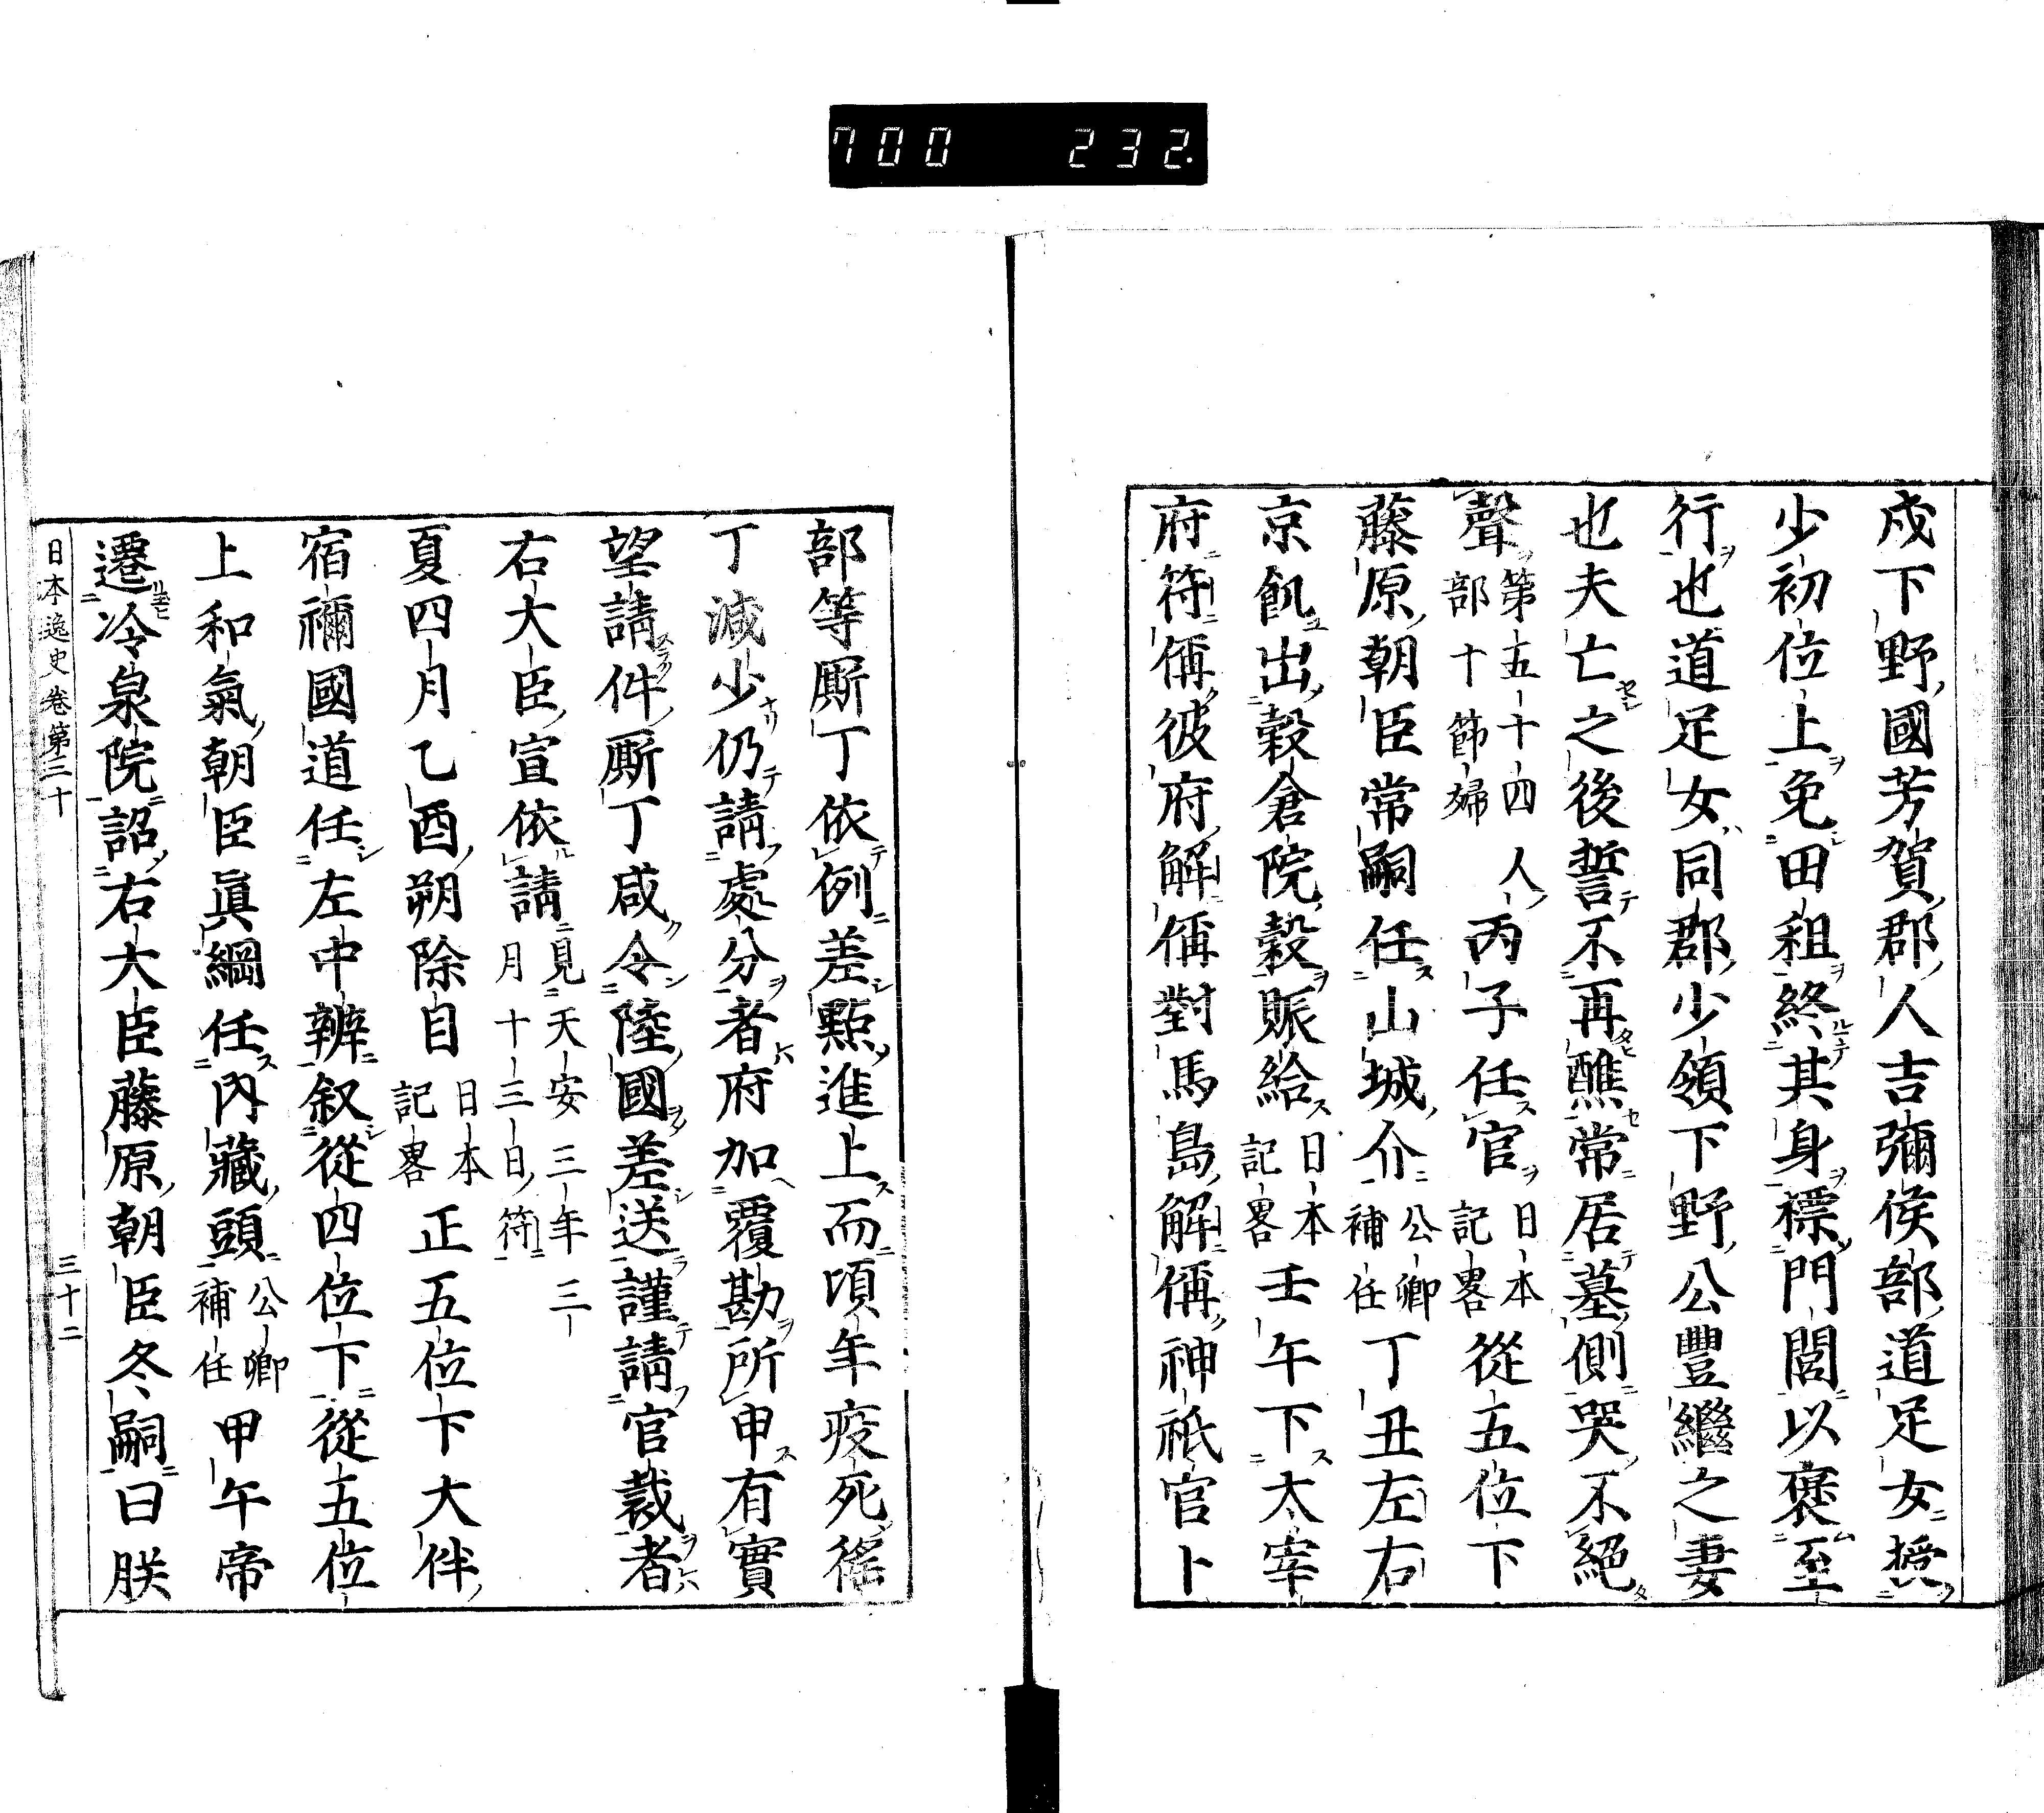 700 232.
戍下野國芳賀郡人吉彌侯部道足女授
少初位上免田租終其身標門閭以褒至
行也道足女同郡少領下野公豐繼之妻
也夫亡之後誓不再醮常居墓側哭不絕
聲第五十四人
部十節婦
丙子任官日本
記畧
從五位下
藤原朝臣常嗣任山城介公卿
補任
丁丑左右
京飢出穀倉院穀賑給日本
記畧
壬午下太宰
府符偁彼府解偁對馬島解偁神祇官卜
部等厮丁依例差點進上而頃年疫死徭
丁減少仍請處分者府加覆勘所申有實
望請件厮丁咸令陸國差送謹請官裁者
右大臣宣依請見天安三年三
月十三日符
夏四月乙酉朔除目日本
記畧
正五位下大伴
宿禰國道任左中辨叙從四位下從五位
上和氣朝臣眞綱任內藏頭公卿
補任
甲午帝
遷冷泉院詔右大臣藤原朝臣冬嗣曰朕
日本逸史卷第三十 三十二